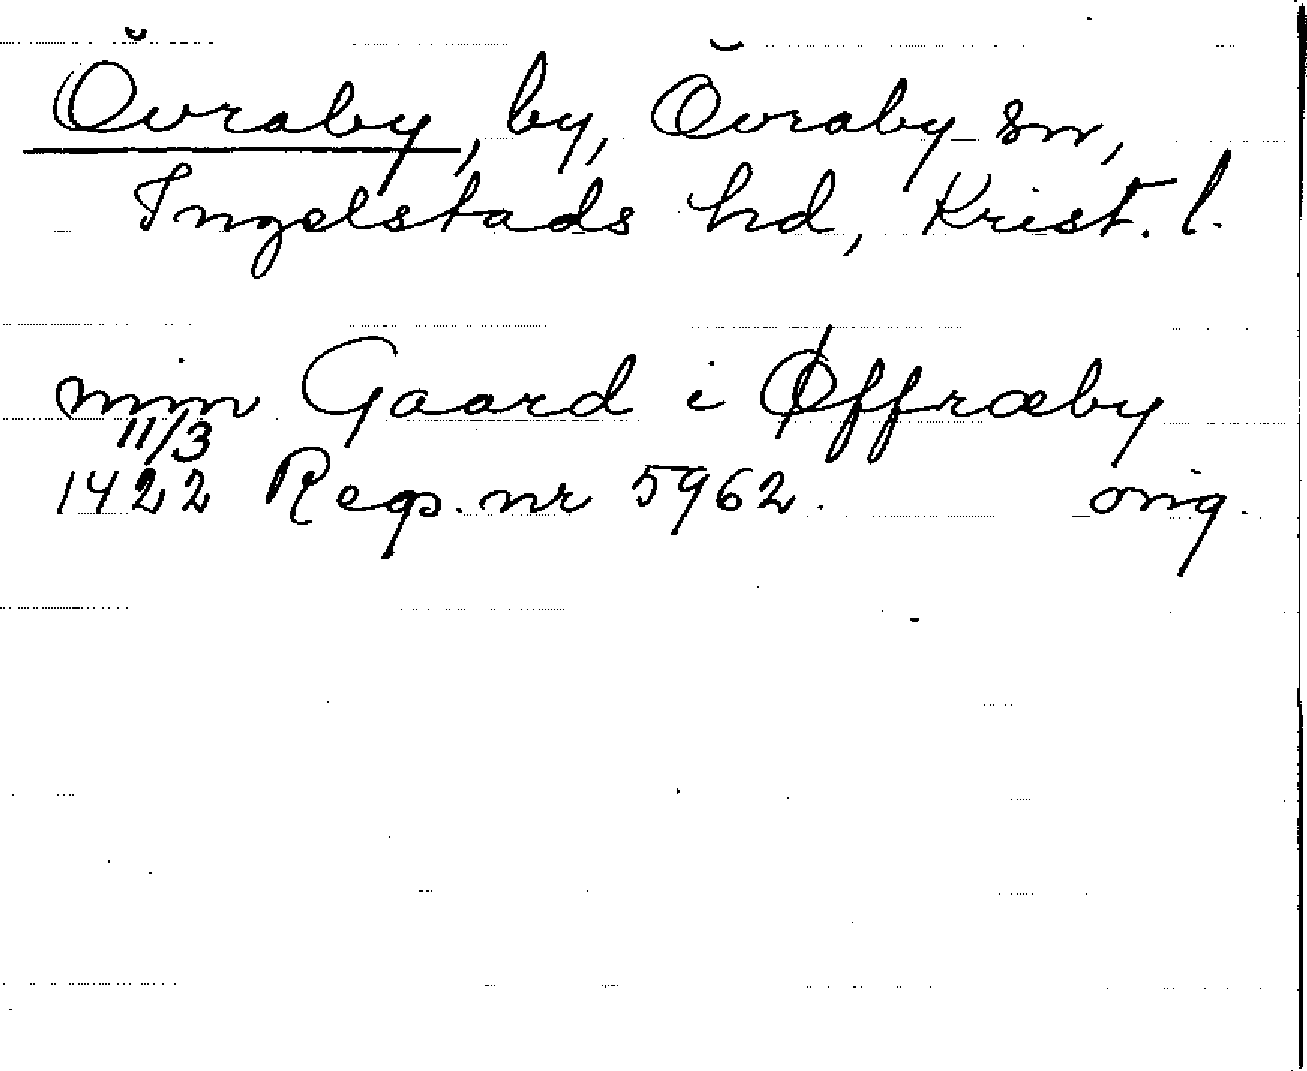 Övraby, by, Övraby sn,
Ingelstads hd, Krist. l.
min Gaard i Øffræby
11/3
1422 Reg. nr 5962. orig.